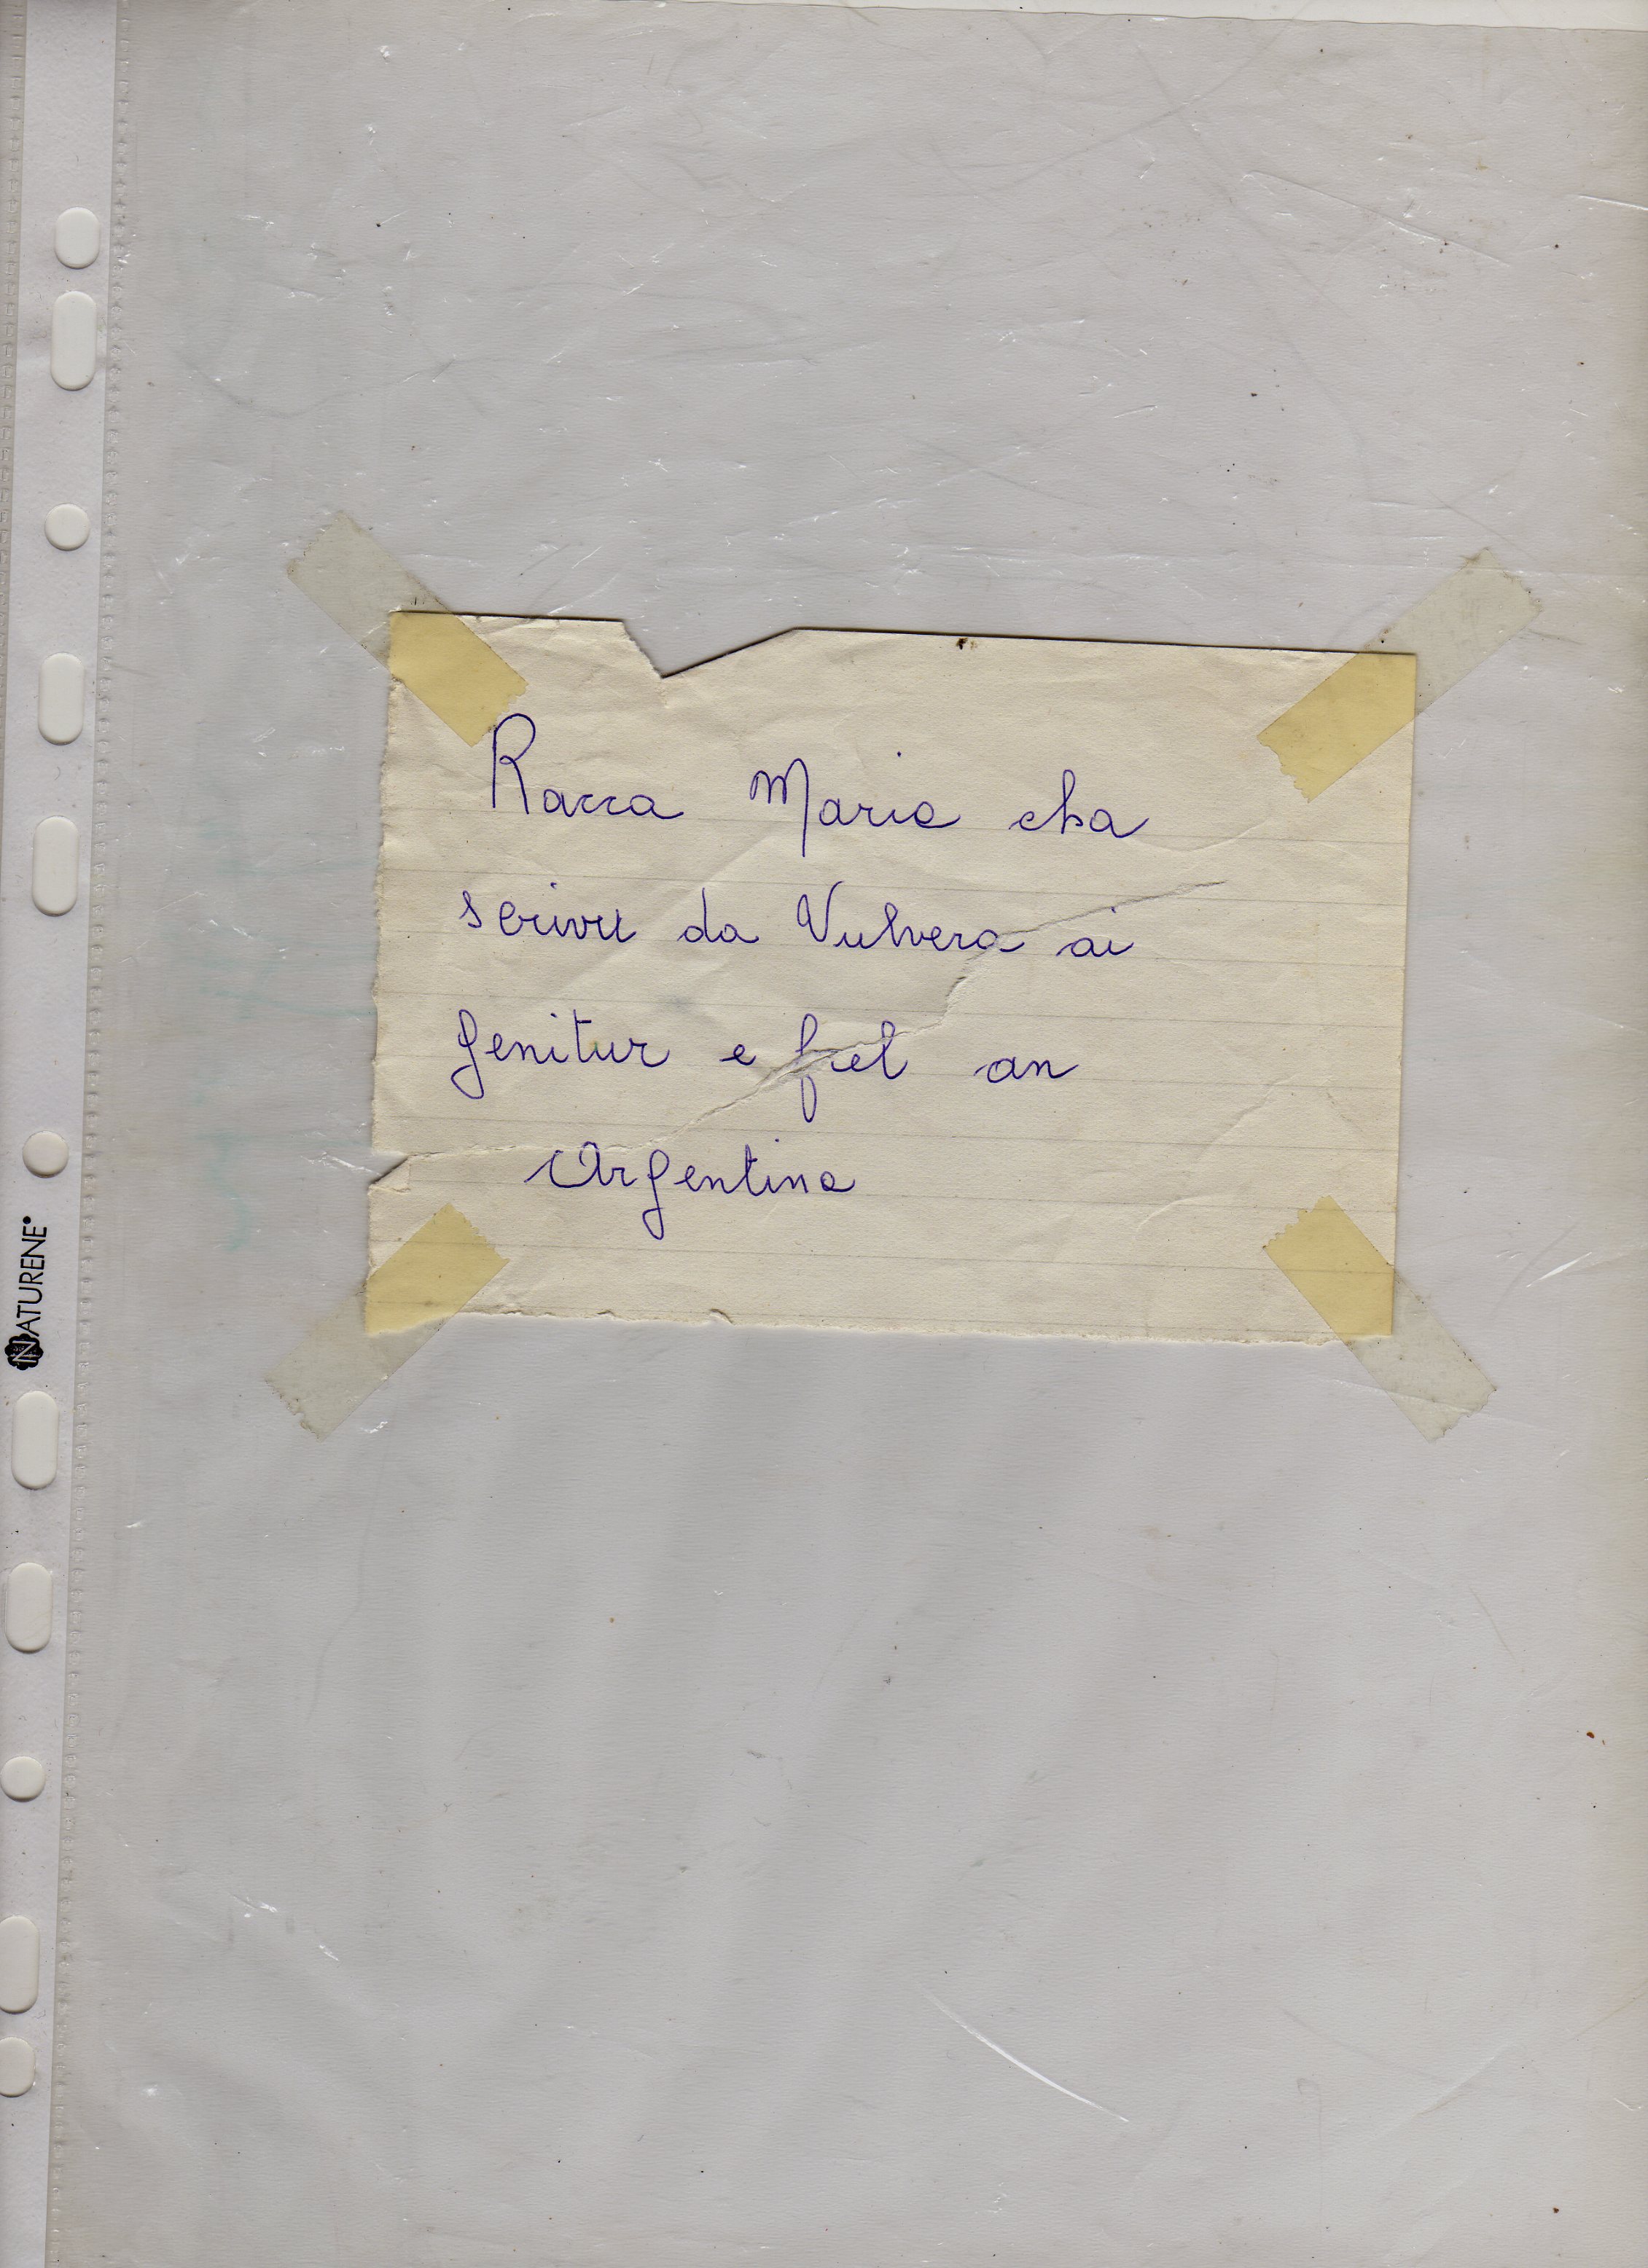 Racca Maria cha
scrivu da Vulvera ai
genitur e fiel an
Argentina
NATURENE